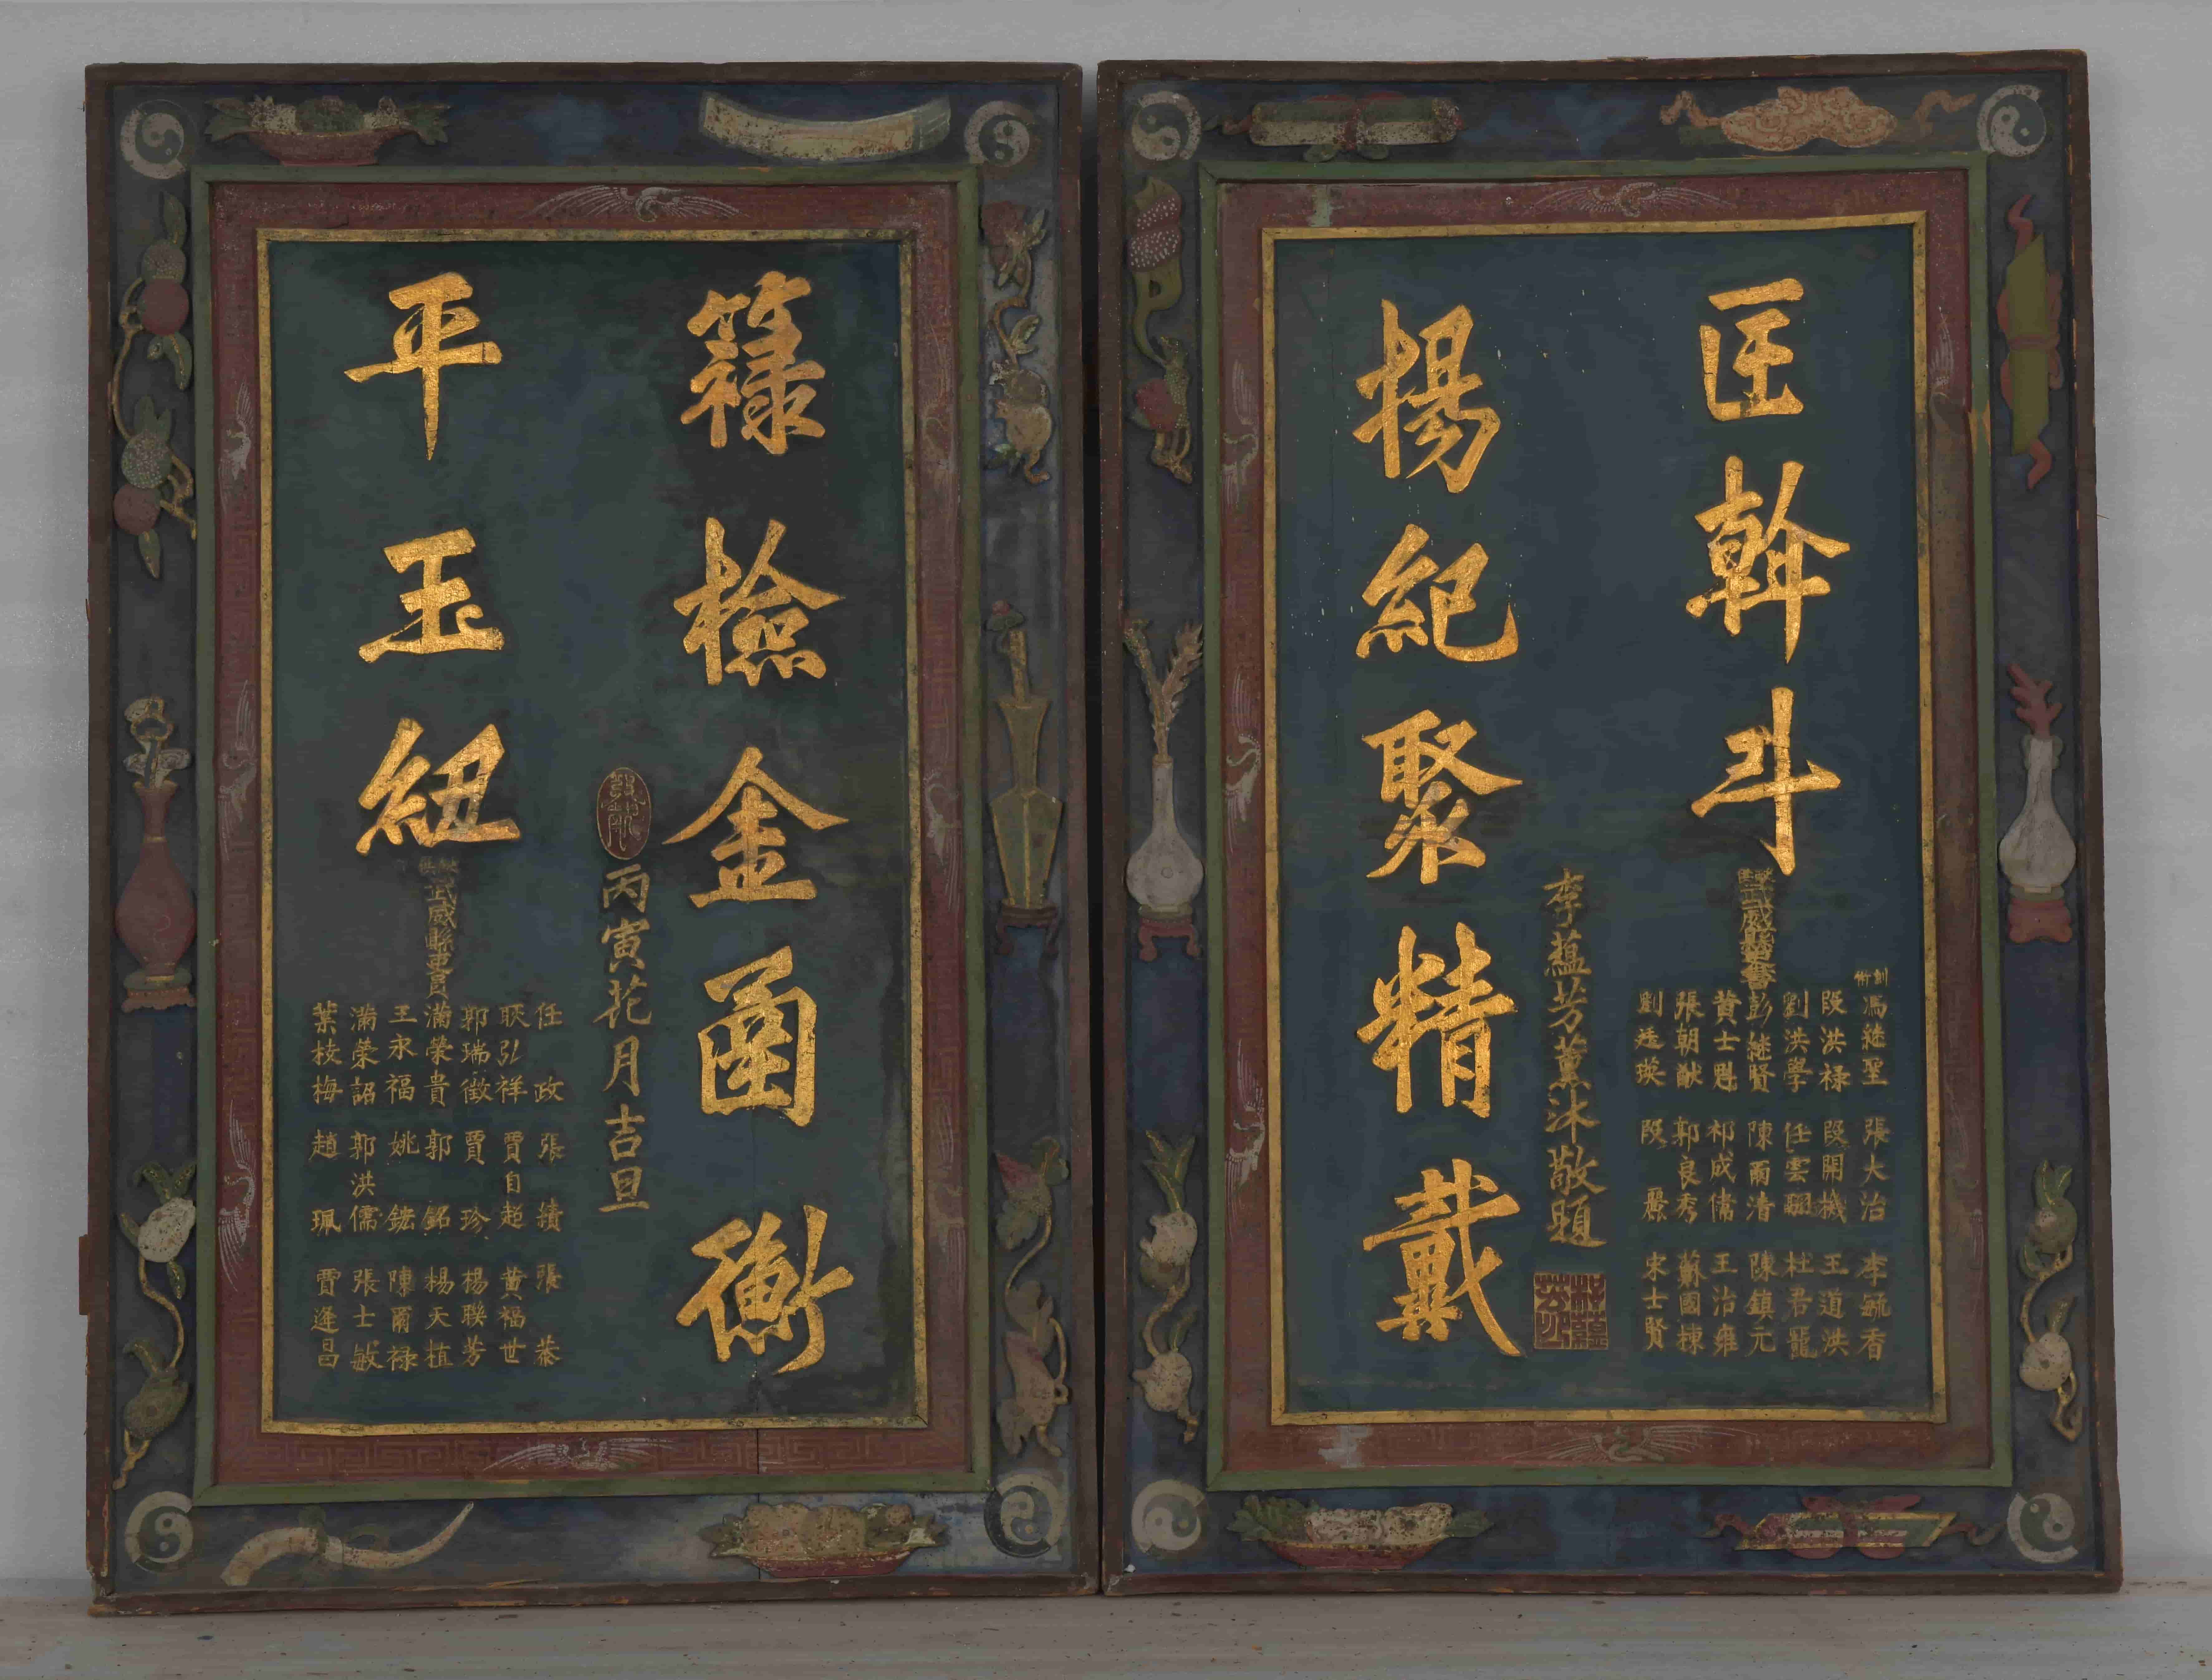 匡斡斗
馮継聖 張大治 李毓香
段洪禄 段開機 王道洪
劉洪學 任雲 杜君寵
彭継賢 陳爾清 陳鎮元
黄士魁 祁成儒 王治雍
張朝猷 郭良秀 蘇國棟
劉廷瑛 段 宋士賢
李蘊芳薰沐敬題
揚紀聚精戴
籙檢金圅衡
丙寅花月吉旦
平玉紐
武威縣吏員
任政 張績 張恭
耿弘祥 賈自超 黄福世
郭瑞徵 賈珍 楊聯芳
滿榮貴 郭銘 楊天植
王永福 姚鋐 陳爾禄
滿榮詔 郭洪儒 張士敏
葉枝梅 趙珮 賈逢昌